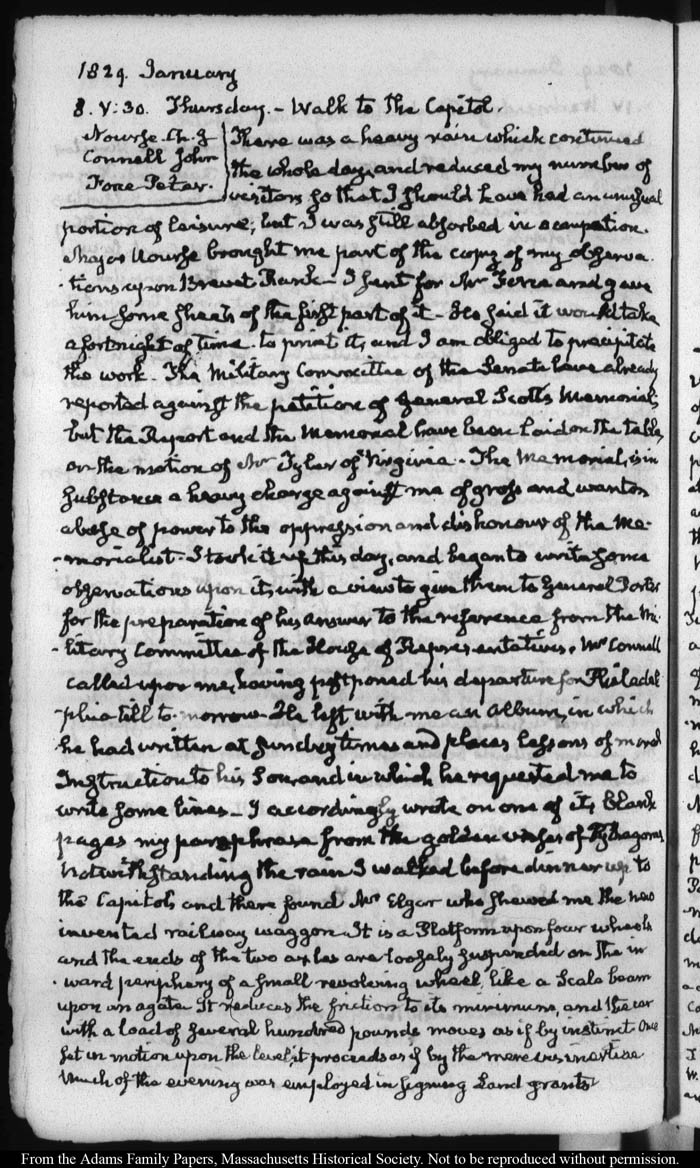 1829. January
8. V:30. Thursday. – Walk to the Capitol.
Nourse. Ch. J
Connell John
Force Peter.
There was a heavy rain which continued
the whole day, and reduced my number of
visitors so that I should have had an unusual
portion of leisure; but I was still absorbed in occupation.
Major Nourse brought me part of the copy of my observa-
-tions upon Brevet Rank – I sent for Mr Force and gave
him some sheets of the first part of it – He said it would take
a fortnight of time to print it, and I am obliged to precipitate
the work. The Military Committee of the Senate have already
reported against the petition of General Scott's Memorial;
but the Report and the Memorial have been laid on the table,
on the motion of Mr Tyler of Virginia. The Memorial, is in
substance a heavy charge against me of gross and wanton
abuse of power to the oppression and dishonour of the Me-
-morialist. I took it up this day, and began to write some
observations upon it, with a view to give them to General Porter
for the preparation of his answer to the reference from the Mi-
-litary Committee of the House of Representatives. Mr Connell
called upon me, having postponed his departure for Philadel-
-phia till to-morrow. He left with me an Album, in which
he had written at sundry times and places lessons of moral
Instruction to his Son, and in which he requested me to
write some lines – I accordingly wrote on one of its blank
pages my paraphrase from the golden verses of Pythagoras.
Notwithstanding the rain I walked before dinner up to
the Capitol; and there found Mr Elgar who shewed me the new
invented railway waggon. It is a Platform upon four wheels
and the ends of the two axles are loosely suspended on the in-
-ward periphery of a small revolving wheel, like a Scale beam
upon an agate. It reduces the friction to its minimum, and the car
with a load of several hundred pounds moves as if by instinct. Once
set in motion upon the level, it proceeds as if by the mere vis inertiae
Much of the evening was employed in signing Land grants
From the Adams Family Papers, Massachusetts Historical Society. Not to be reproduced without permission.